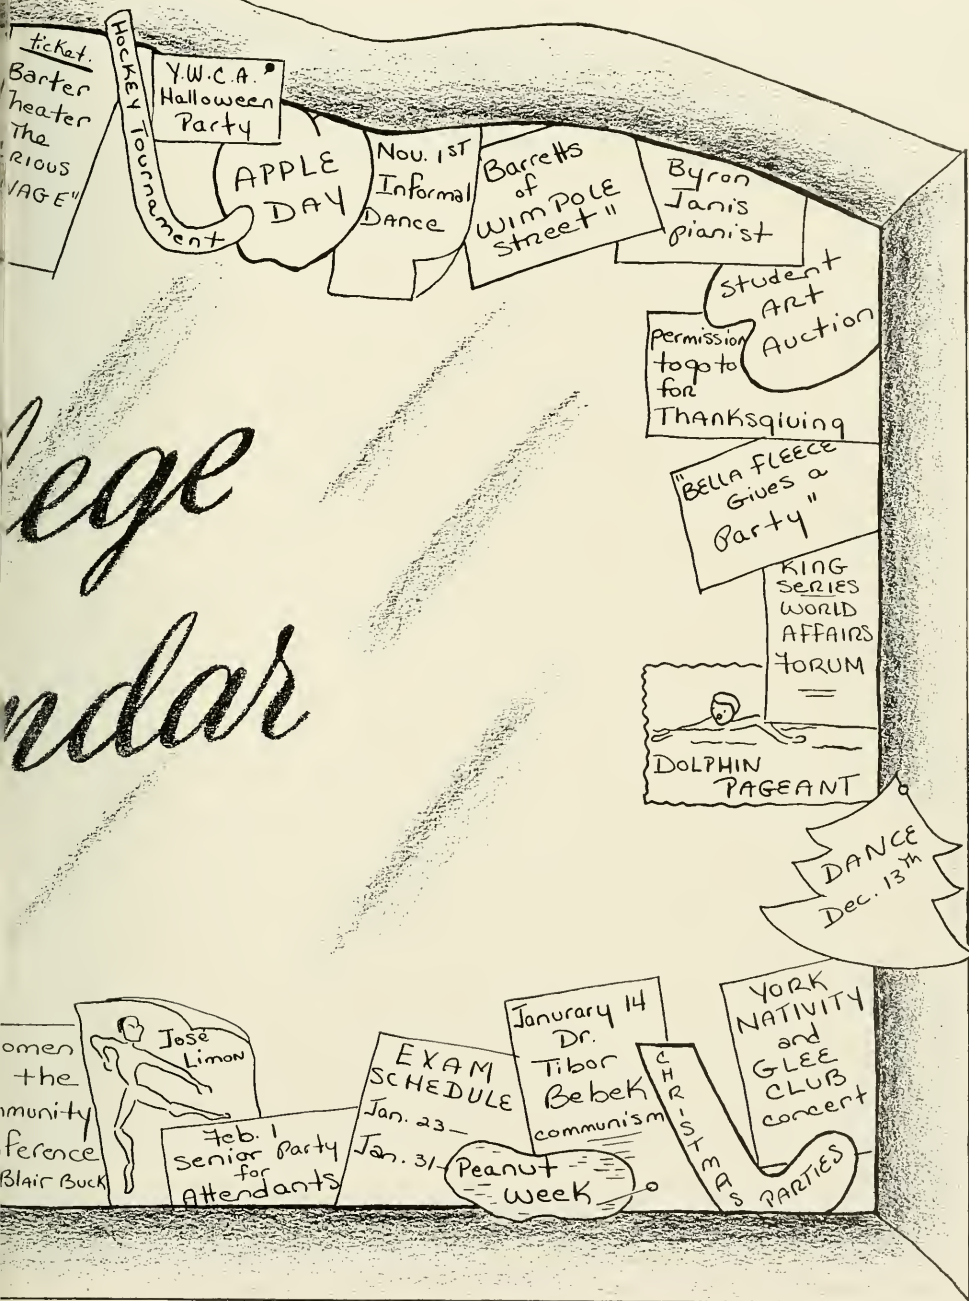 ticket.
Barter
heater
The
RIOUS
VAGE"
HOCKEY Tournament
Y.W.C.A.
Halloween
Party
APPLE
DAY
Nov. 1ST
Informal
Dance
Barretts
of
WIMPOLE
Street"
Byron
Janis
pianist
Student
ART
Auction
permission
to go to
for
Thanksgiving
"BELLA FLEECE
Gives a
Party"
KING
SERIES
WORLD
AFFAIRS
FORUM
lege
ndar
DOLPHIN
PAGEANT
DANCE
Dec. 13th
omen
the
mmunity
ference
Blair Buck
José
Limon
Feb. 1
Senior Party
for
Attendants
EXAM
SCHEDULE
Jan. 23 —
Jan. 31 —
Janurary 14
Dr.
Tibor
Bebek
communism
Peanut
Week
CHRISTMAS
PARTIES
YORK
NATIVITY
and
GLEE
CLUB
concert